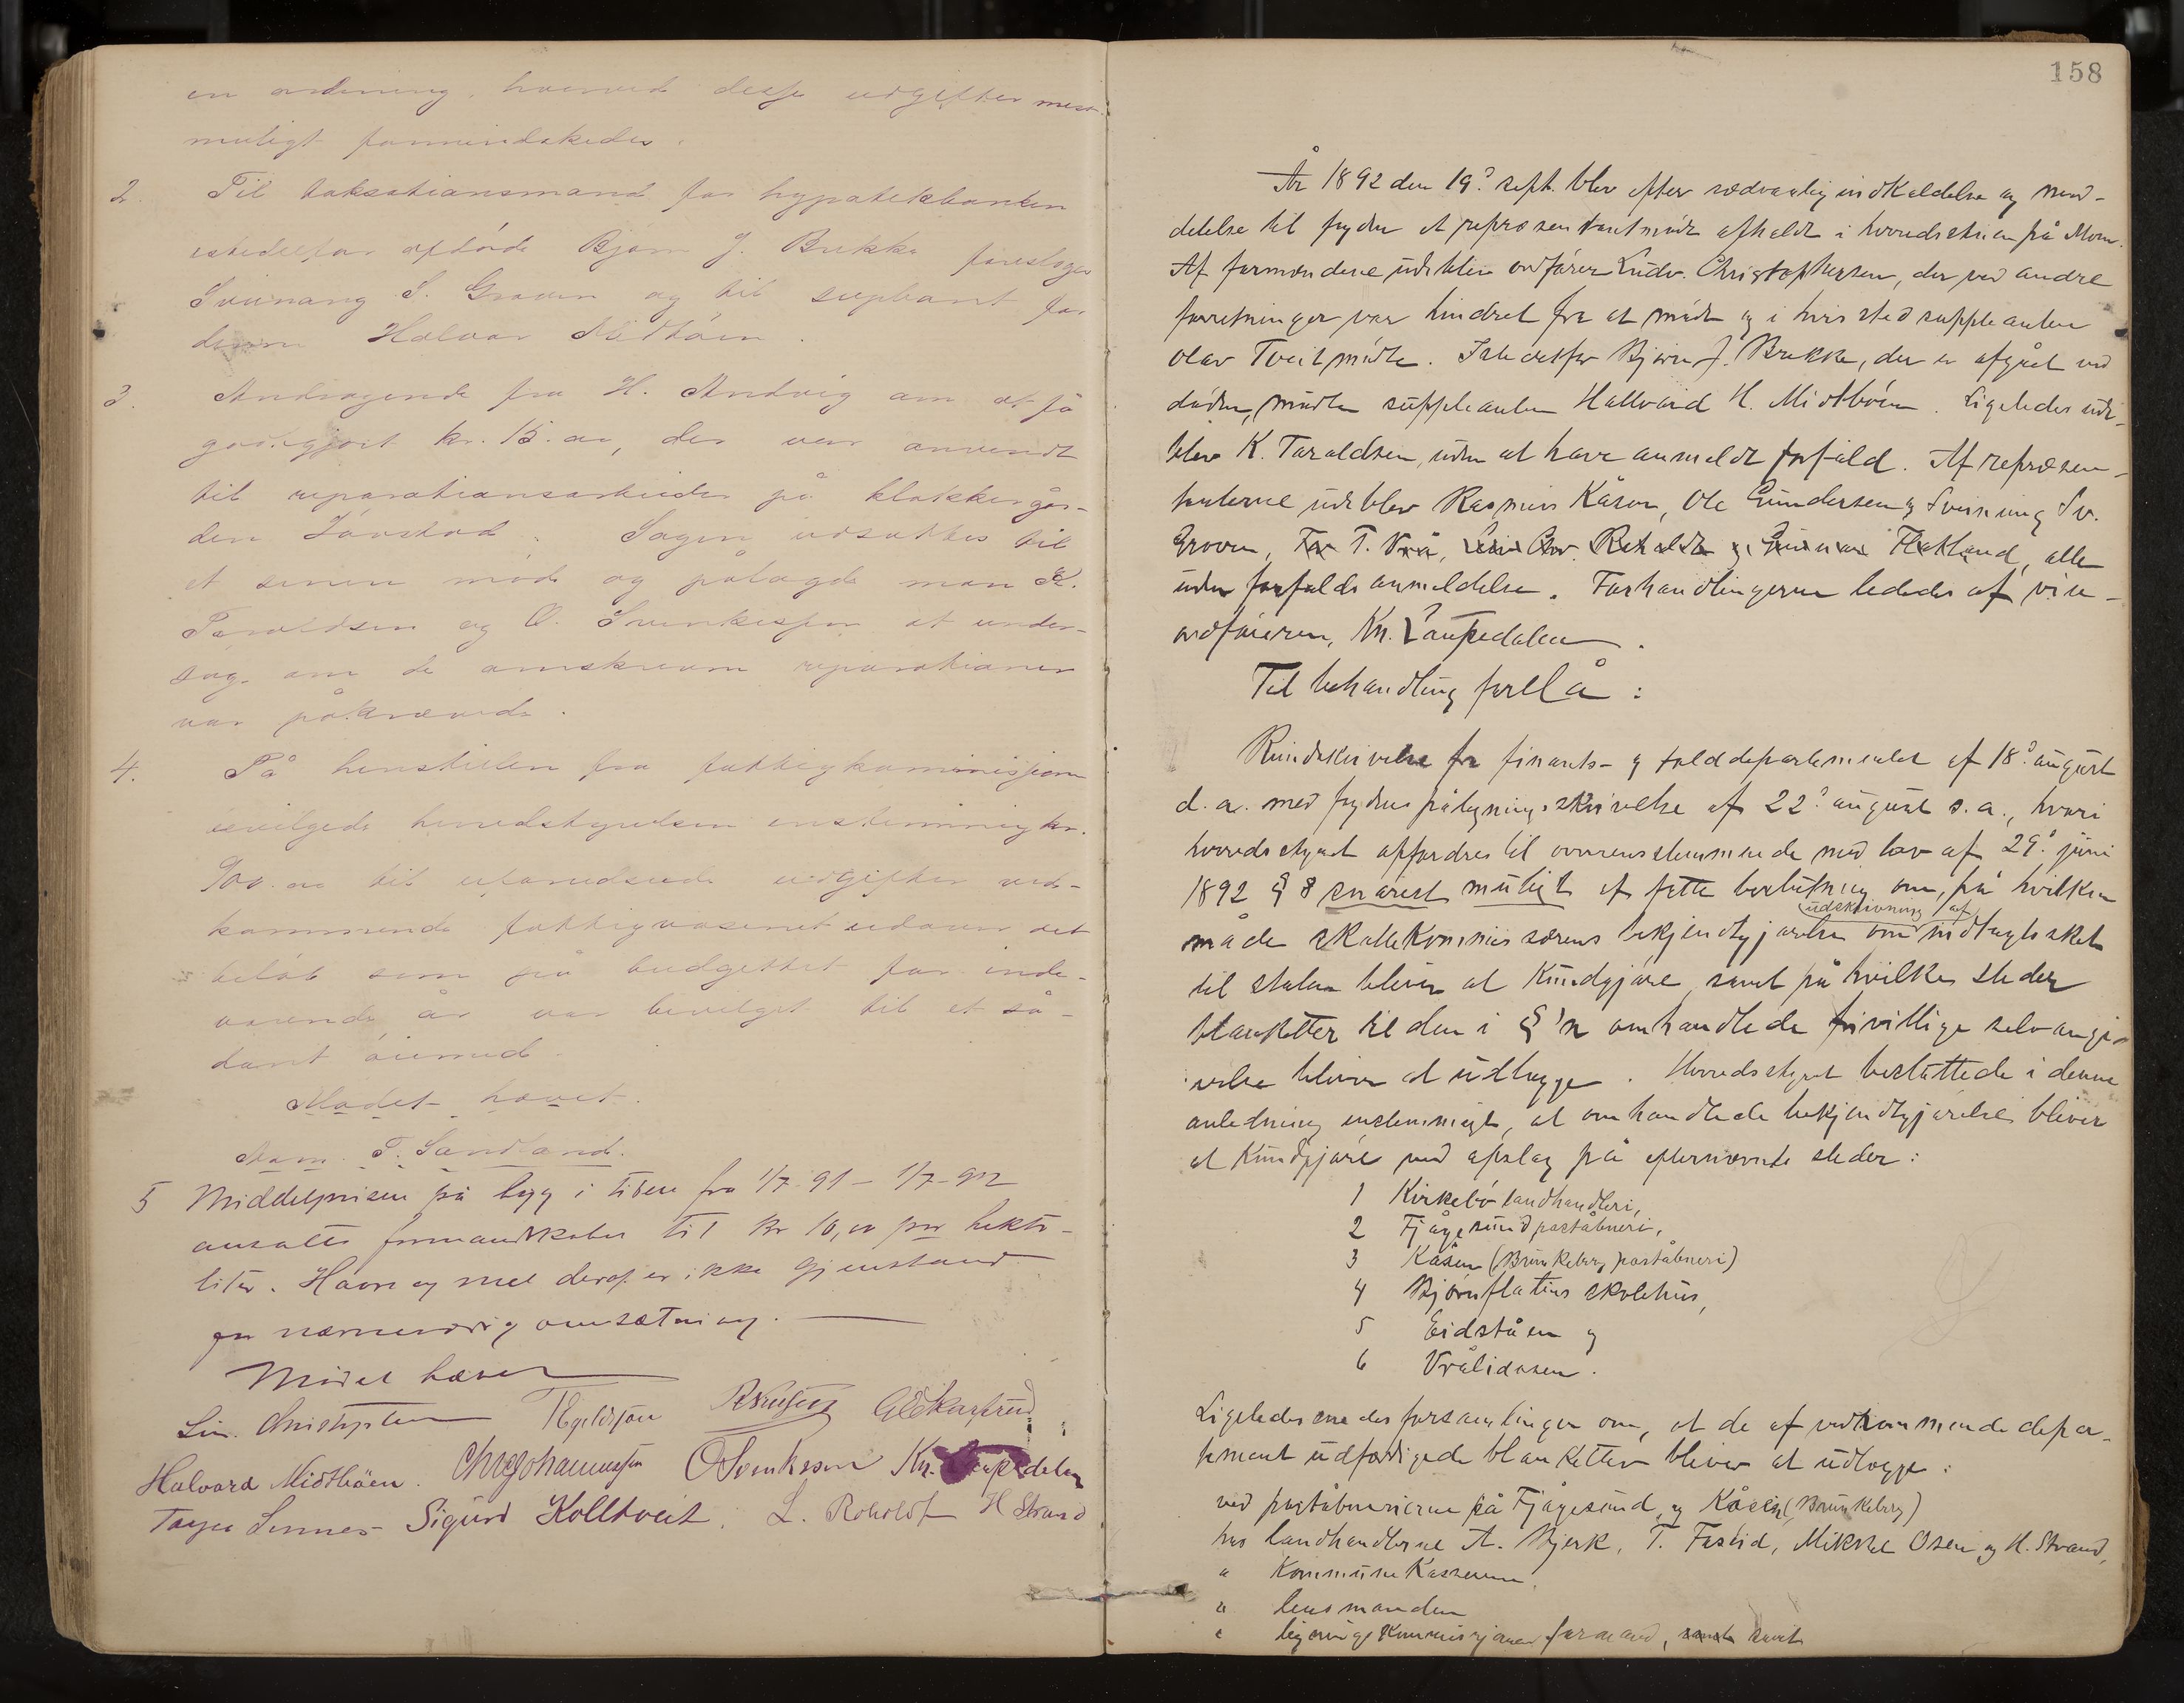 en ordening, hvorved desse udgifter mest
muligt formindskedes.
2. Til taksationsmand for hypotekbanken
istedetfor afdøde Bjørn J. Brekke foresloges
Sveinung S. Groven og til supleant for
denne Halvor Midtbøen.
3. Andragende fra H. Andvig om at få
godtgjort kr. 15.00, der var anvendt
til reparationsarbeider på klokkergår-
den Løvstad. Sagen udsattes til
et senere møde og pålagde man K.
Taraldsen og O. Svenkesen at under-
søge om de omskrevne reparationer
var påkrævede.
4. På henstillen fra fattigkommissionen
bevilgede herredstyrelsen enstemmig kr.
900.00 til uforudseede udgifter ved-
kommende fattigvæsenet udover det
beløb som på budgettet for inde-
værende år var bevilget til et så-
dant øiemed.
Mødet hævet.
Aam. T. Sundland.
5 Middelprisen på byg i tiden fra 1/7 91 – 1/7-92
ansattes formandskabet til kr 10,00 pr hekto-
liter. Havre og mel deraf er ikke gjenstand
for nævneværdig omsætning.
Mødet hævet
Lin. Christophersen TEgeldsen
Halvard Midtbøen. Chr Johannessen OSvenkesen Kn. Laupedalen
Sigurd Kolltveit. L. Roholdt H Strand
158
År 1892 den 19de sept. blev efter sædvanlig indkaldelse og med-
delelse til fogden et repræsentantmøde afholdt i herredsstuen på Moen.
Af formændene udeblev ordfører Ludv. Christophersen, der ved andre
forretninger var hindret fra at møde og i hvis sted suppleanten
Olav Tveit mødte. Istedetfor Bjørn J. Brekke, der er afgået ved
døden, mødte suppleanten Hallvard H. Midtbøen. Ligeledes ude-
blev K. Taraldsen, uden at have anmeldt forfald. Af repræsen-
tanterne udeblev Rasmus Kåsen, Ole Gundersen og Sveinung Sv.
Groven, T. Vrå, Roholdt og Gunnar Flatland, alle
uden forfalds anmeldelse. Forhandlingerne lededes af vice-
ordføreren, Kn. Laupedalen.
Til behandling forelå:
Rundskrivelse fra finants- og tolddepartementet af 18de august
d. a. med fogdens påtegningsskrivelse af 22de august s. a., hvori
herredsstyret opfordres til overensstemmende med lov af 29de juni
1892 § 8 snarest muligt at fatte beslutning om, på hvilken
udskrivning af
måde skattekommissærens bekjendtgjørelse om indtægtsskat
til staten bliver at kundgjøre, samt på hvilke steder
blanketter til den i §'n omhandlede frivillige selvangi-
velse bliver at udlægge. Herredsstyret besluttede i denne
anledning enstemmigt, at omhandlede bekjendtgjørelse bliver
at kundgjøre ved opslag på efternævnte steder:
1 Kirkebø landhandleri,
2 Fjågesund poståbneri,
3 Kåsen (Brunkeberg poståbneri)
4 Bjørnflatens skolehus,
5 Eidståen og
6 Vrålidosen.
Ligeledes enedes forsamlingen om, at de af vedkommende depar-
tement udfærdigede blanketter bliver at udlægge:
ved poståbnerierne på Fjågesund, og Kåsen (Brunkeberg)
hos landhandlerne A. Bjerk, T. Fasteid, Mikkel Osen og H. Strand,
" Kommunekassereren,
" lensmanden
" ligningskommissionens formand, samt